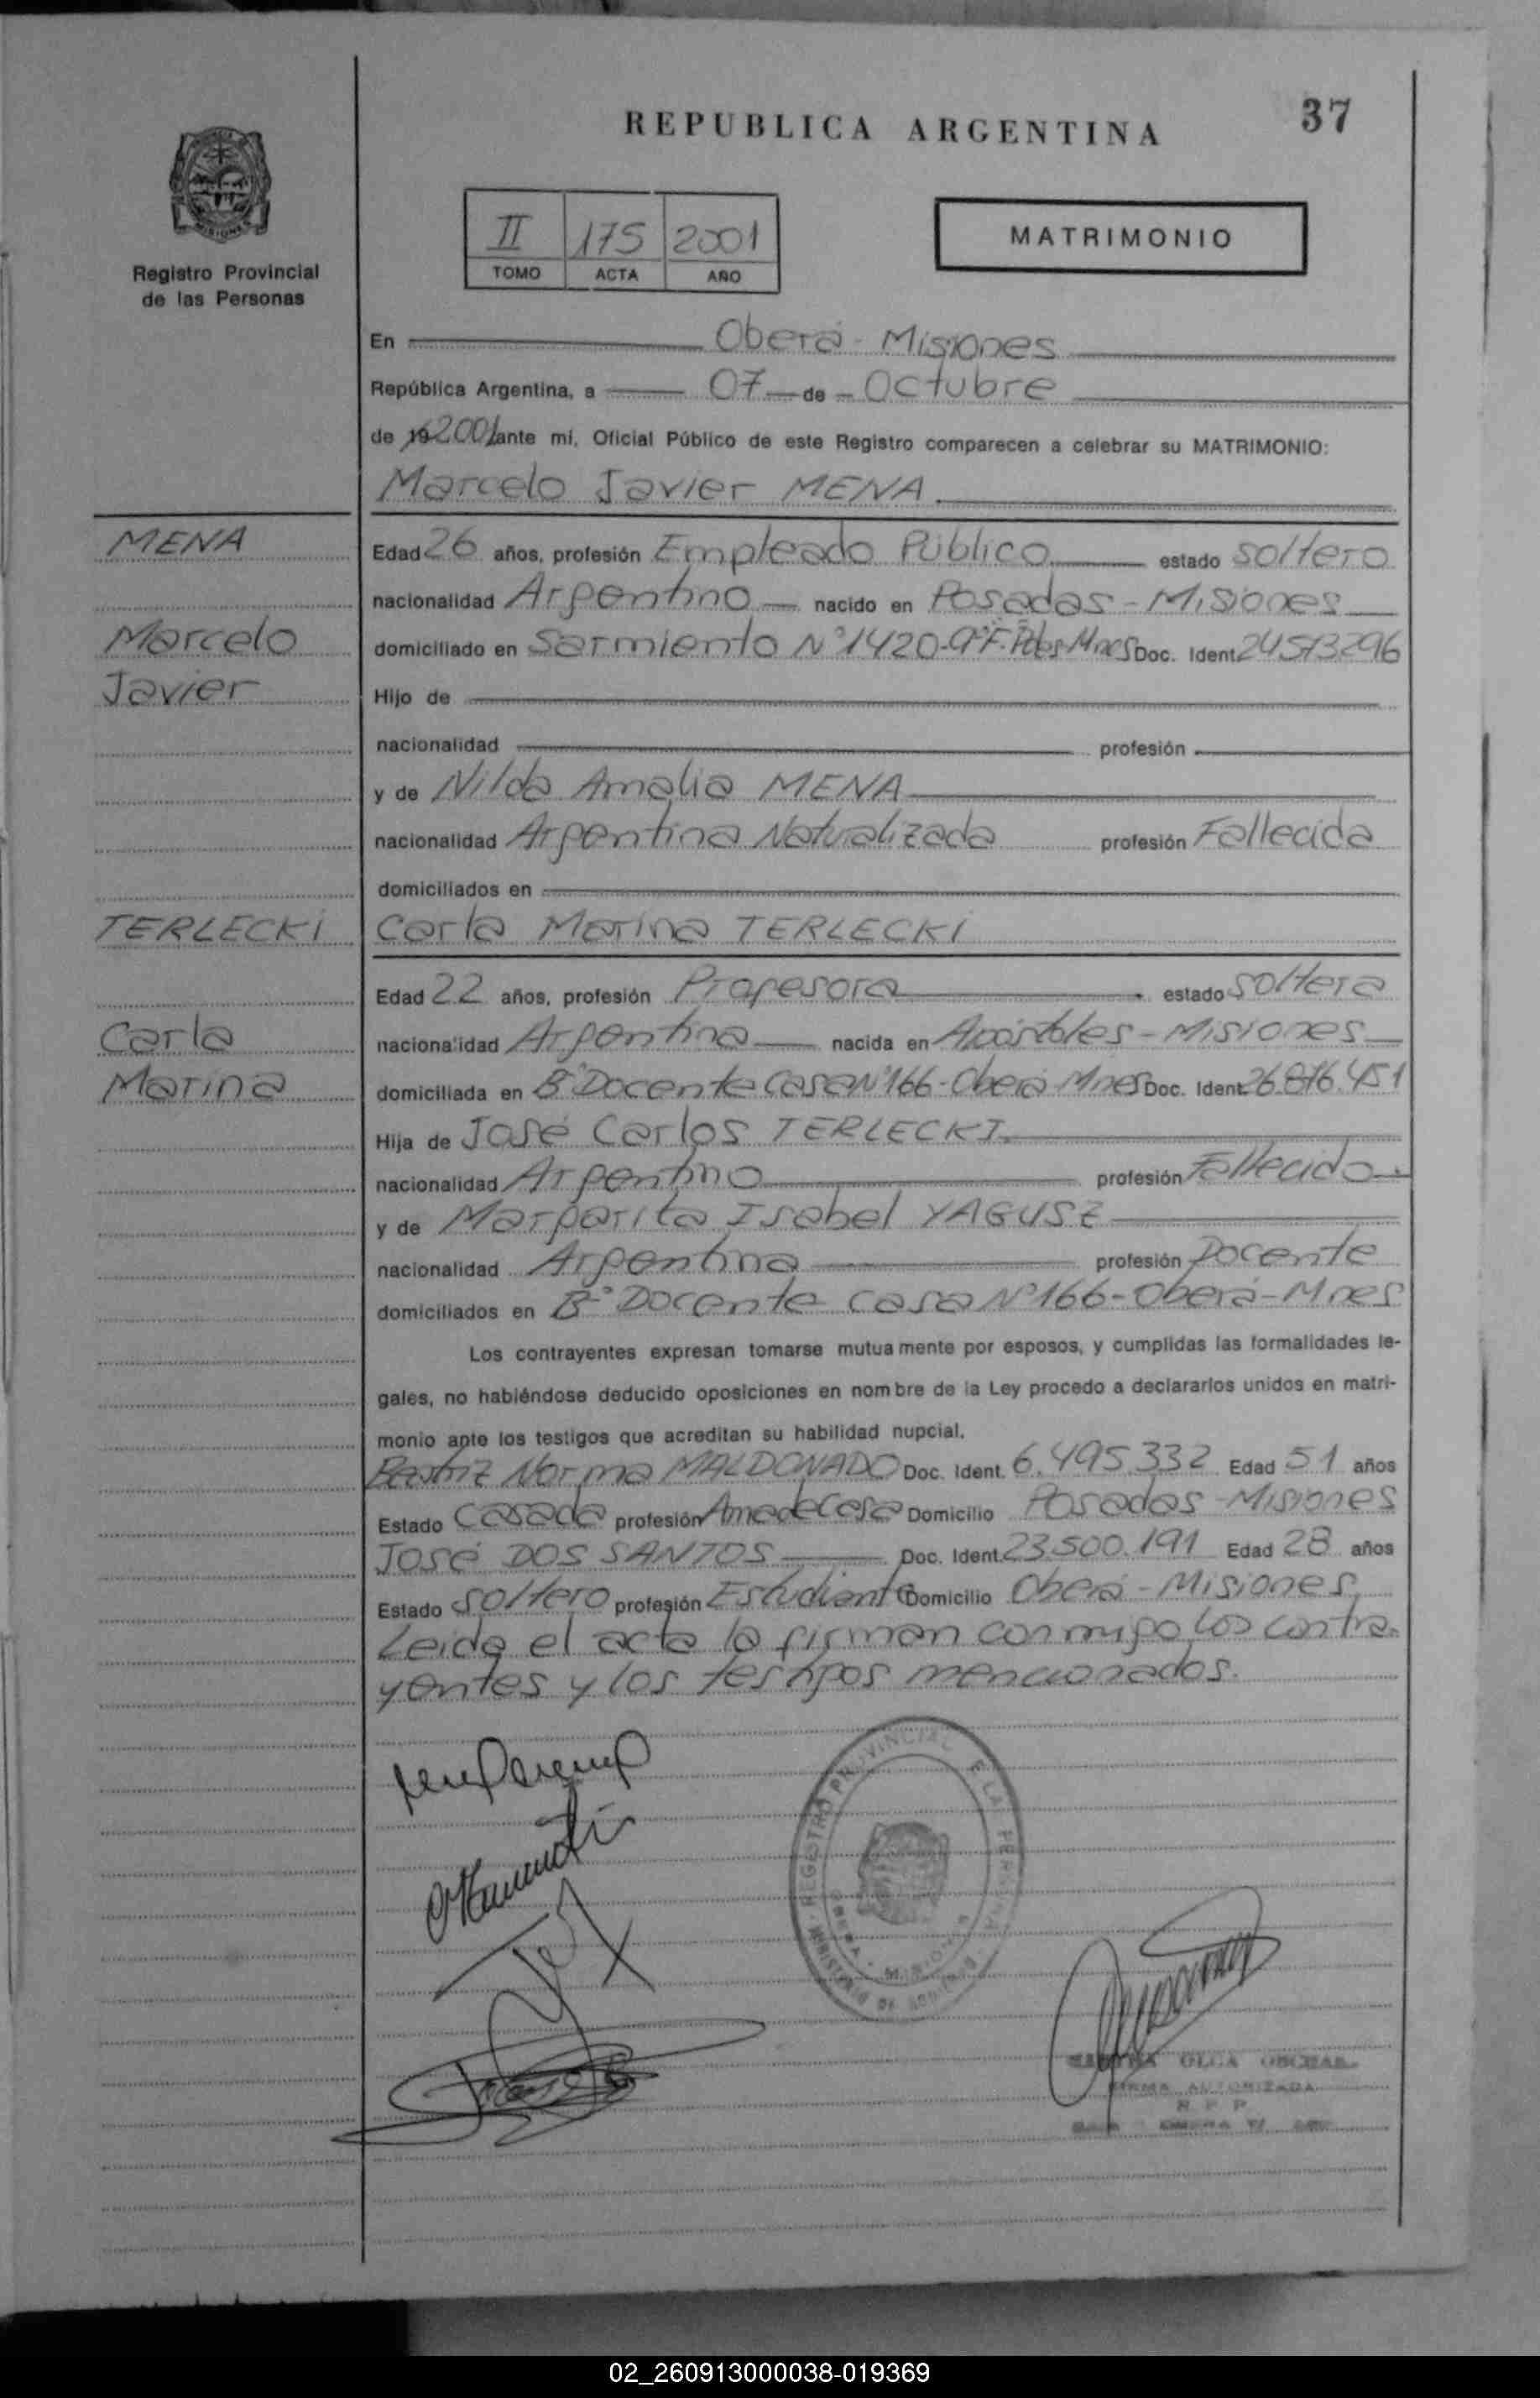 REPUBLICA ARGENTINA
37
MISIONES
Registro Provincial
de las Personas
II 175 2001
TOMO ACTA AÑO
MATRIMONIO
En Oberá - Misiones
República Argentina, a 07 de Octubre
de 19 2001 ante mí, Oficial Público de este Registro comparecen a celebrar su MATRIMONIO:
Marcelo Javier MENA
MENA
Marcelo
Javier
Edad 26 años, profesión Empleado Público estado soltero
nacionalidad Argentino nacido en Posadas - Misiones
domiciliado en Sarmiento Nº 1420-9º F. Pdas Mnes Doc. Ident. 24573296
Hijo de
nacionalidad profesión
y de Nilda Amalia MENA
nacionalidad Argentina Naturalizada profesión Fallecida
domiciliados en
TERLECKI
Carla
Marina
Carla Marina TERLECKI
Edad 22 años, profesión Profesora estado soltera
nacionalidad Argentina nacida en Apóstoles - Misiones
domiciliada en Bº Docente Casa Nº 166 - Oberá Mnes Doc. Ident. 26.816.451
Hija de José Carlos TERLECKI
nacionalidad Argentino profesión Fallecido
y de Margarita Isabel YAGUSZ
nacionalidad Argentina profesión Docente
domiciliados en Bº Docente Casa Nº 166 - Oberá - Mnes
Los contrayentes expresan tomarse mutuamente por esposos, y cumplidas las formalidades le-
gales, no habiéndose deducido oposiciones en nombre de la Ley procedo a declararlos unidos en matri-
monio ante los testigos que acreditan su habilidad nupcial.
Beatriz Norma MALDONADO Doc. Ident. 6.495.332 Edad 51 años
Estado Casada profesión Ama de Casa Domicilio Posadas - Misiones
José DOS SANTOS Doc. Ident. 23.500.191 Edad 28 años
Estado soltero profesión Estudiante Domicilio Oberá - Misiones
Leida el acta la firman conmigo, los contra-
yentes y los testigos mencionados.
REGISTRO PROVINCIAL DE LAS PERSONAS
OLGA
FIRMA AUTORIZADA
R P P
02_260913000038-019369